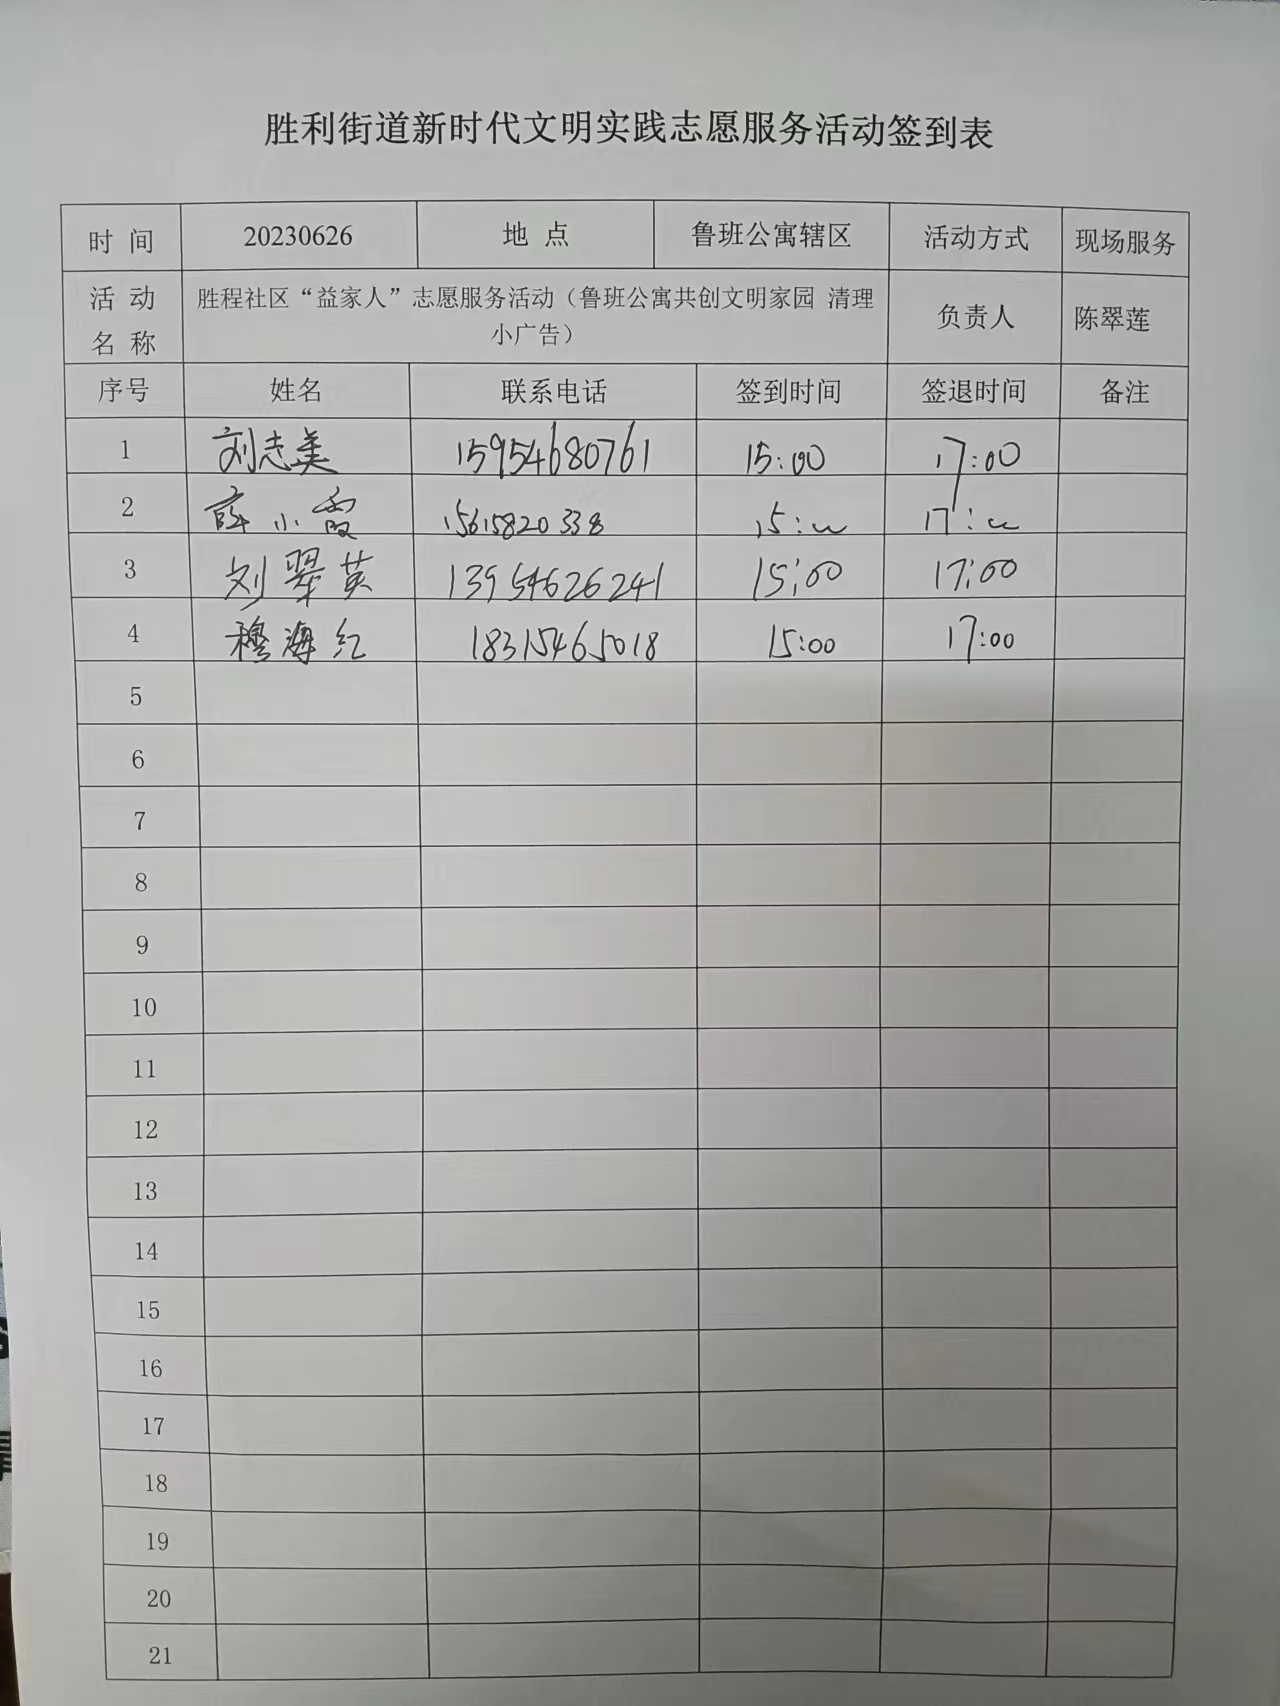 胜利街道新时代文明实践志愿服务活动签到表
时 间 20230626 地 点 鲁班公寓辖区 活动方式 现场服务
活 动
名 称
胜程社区“益家人”志愿服务活动（鲁班公寓共创文明家园 清理
小广告）
负责人 陈翠莲
序号 姓名 联系电话 签到时间 签退时间 备注
1 刘志美 15954680761 15:00 17:00
2 薛小霞 15615820338 15:00 17:00
3 刘翠英 13954626241 15:00 17:00
4 穆海红 18315465018 15:00 17:00
5
6
7
8
9
10
11
12
13
14
15
16
17
18
19
20
21